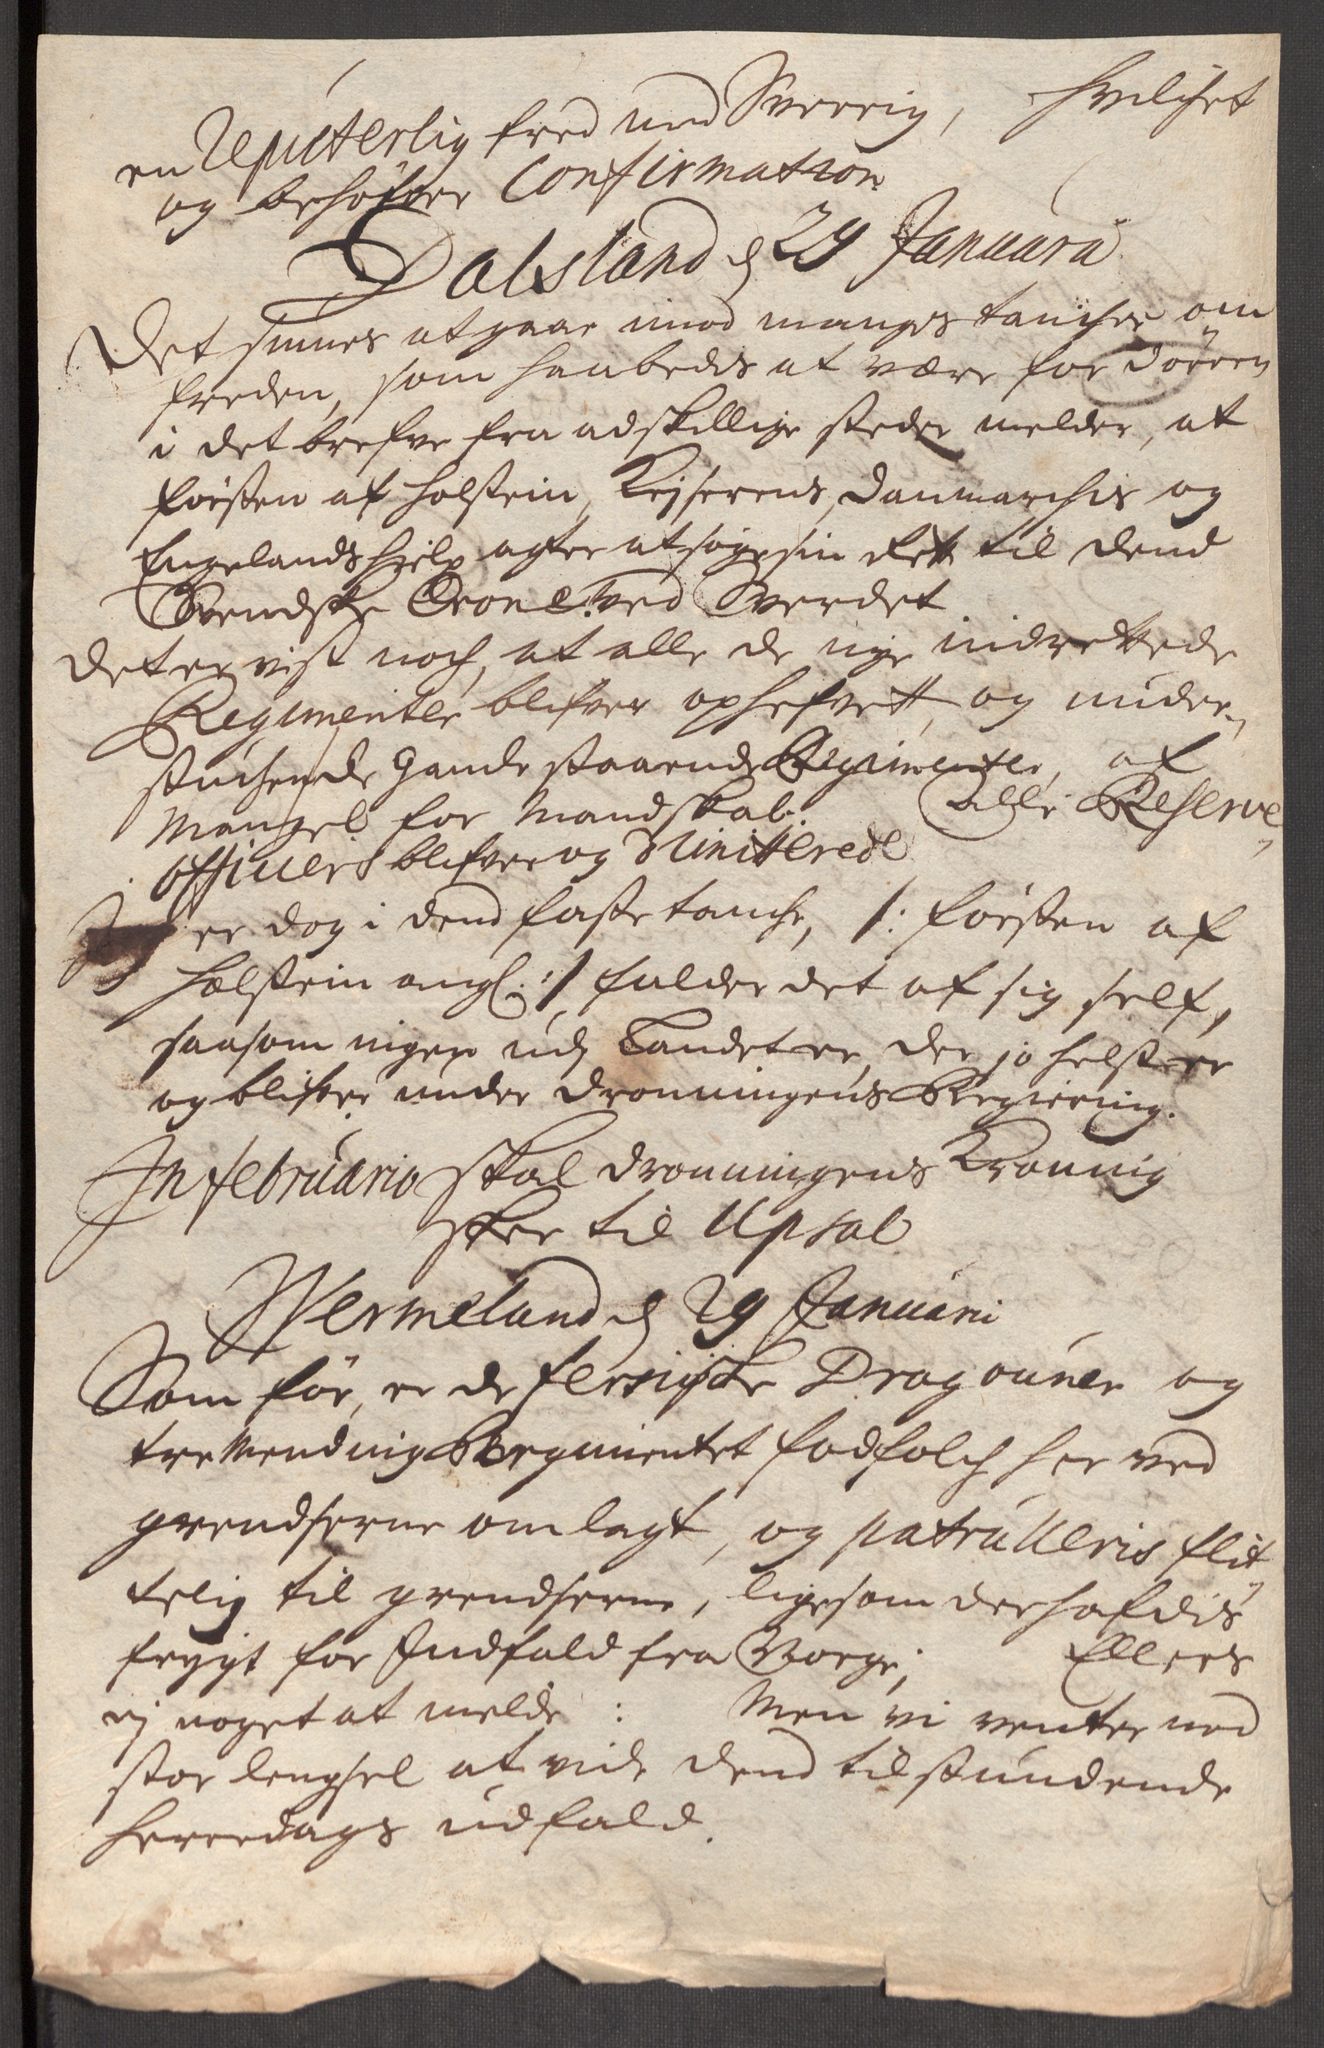 en Reputerlig fred med Sverrig, hvilchet
og behöfver Confirmation
Dalsland d 29 Januarii
Det siunes at gaar imod manges tancher om
freden, som haabedes at være for döeren,
i det brefve fra adskillige steder melder, at
försten af Holstein, Keyserens, Danmarchis og
Engelands hielp agter at söge sin Rett til dend
Svendske Crone ved Sverdet
Det er vist noch, at alle de nye indrettede
Regimenter blifver ophefvett, og under-
stuchende gandske staaende Regimenter, af
Mangel for Mandskab. Alle Reserve
officiers blifver og
Jeg er dog i dend faste tanche, /: försten af
Holstein angl: :/ falder det af sig self,
saasom ingen udj Landet er, der jo helst er
og blifver under Dronningens Regiering.
In februario skal Dronningens Kroning
skee til Upsal
Wermeland d 29 Januarii
Som för, er de fersiske Dragouner og
tremendning Regimentet fodfolch her ved
grendserne omlagt, og patrulleris flit
telig til grendserne, ligesom der hafdis
frygt for Indfald fra Norge; Ellers
ej noget at melde: Men vi venter med
stor lengsel at vide dend tilstundende
herredags udfald.